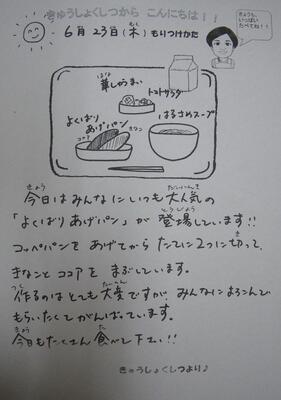 きゅうしょくしつから こんにちは!!
6月23日(木)もりつけかた
きょうも、
いっぱい
たべてね!
華しゅうまい
トマトサラダ
よくばり
あげパン
ココア
きなこ
はるさめスープ
今日はみんなにいつも大人気の
「よくばりあげパン」が登場しています!!
コッペパンをあげてからたてに2つに切って、
きなことココアをまぶしています。
作るのはとても大変ですが、みんなによろこんで
もらいたくてがんばっています。
今日もたくさん食べて下さい!!
きゅうしょくしつより♪